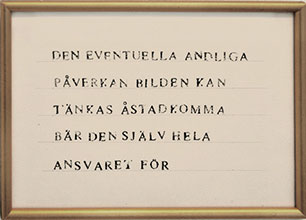 DEN EVENTUELLA ANDLIGA
PÅVERKAN BILDEN KAN
TÄNKAS ÅSTADKOMMA
BÄR DEN SJÄLV HELA
ANSVARET FÖR